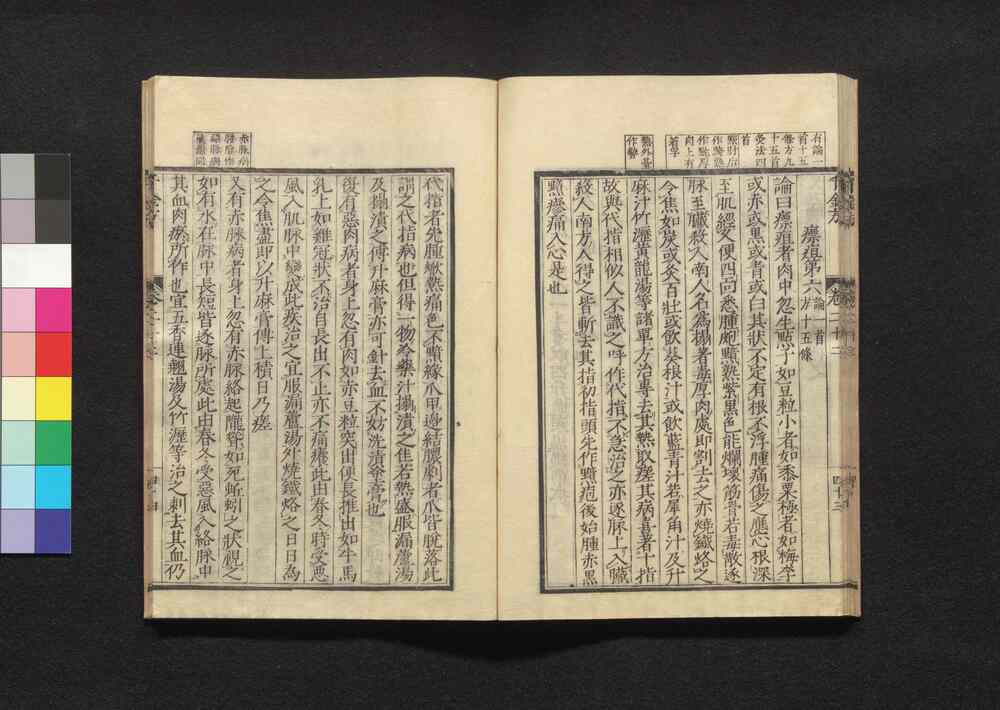 有論一
首十五
每方九
十五首
灸法四
首
瘭疽第六 論一首 方十五條
論曰瘭疽者肉中忽生㸃子如豆粒小者如黍粟極者如梅李
或赤或黑或青或白其狀不定有根不浮腫痛傷之應心根深
至肌經久便四面悉腫皰黯熟紫黑色能爛壞筋骨若毒散逐
脉至臟殺人南人名為搨著毒厚肉處即割去之亦燒鐵烙之
令焦如炭或灸百壯或飲葵根汁或飲藍青汁若犀角汁及升
麻汁竹瀝黄龍湯等諸單方治專去其熱取瘥其病喜著十指
故與代指相似人不識之呼作代指不急治之亦逐脉上入臟
殺人南方人得之皆斬去其指初指頭先作黯皰後始腫赤黑
黯瘮痛入心是也
代指者先腫焮熱痛色不黯緣爪甲邊結膿劇者爪皆脱落此
謂之代指病也但得一物冷藥汁搨漬之佳若熱盛服漏蘆湯
及搨漬之傅升麻膏亦可針去血不妨洗漬塗膏也
復有惡肉病者身上忽有肉如赤豆粒突出便長推出如牛馬
乳上如雞冠狀不治自長出不止亦不痛癢此由春冬時受惡
風入肌脉中變成此疾治之宜服漏蘆湯外燒鐵烙之日日為
之令焦盡即以升麻膏傅上積日乃瘥
又有赤脉病者身上忽有赤脉絡起隴聳如死蚯蚓之狀視之
如有水在脉中長短皆逐脉所處此由春冬受惡風入絡脉中
其血肉瘀所作也宜五香連翹湯及竹瀝等治之刺去其血仍